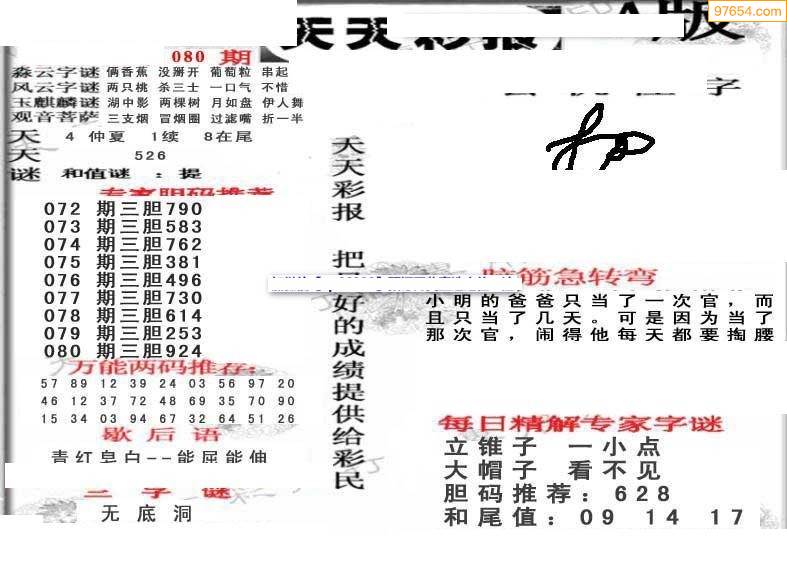 97654.com
天天彩报 A版
080 期
森云字谜 俩香蕉 没掰开 葡萄粒 串起
风云字谜 两只桃 杀三士 一口气 不惜
玉麒麟谜 湖中影 两棵树 月如盘 伊人舞
观音菩萨 三支烟 冒烟圈 过滤嘴 折一半
天 4 仲夏 1续 8在尾
天 526
谜 和值谜 : 提
专家胆码推荐
072 期三胆790
073 期三胆583
074 期三胆762
075 期三胆381
076 期三胆496
077 期三胆730
078 期三胆614
079 期三胆253
080 期三胆924
万能两码推荐:
57 89 12 39 24 03 56 97 20
46 12 37 72 48 69 35 70 90
15 34 03 94 67 32 64 51 26
歇后语
青红皂白--能屈能伸
三字谜
无底洞
天天彩报 把 好的成绩提供给彩民
字
脑筋急转弯
小明的爸爸只当了一次官，而
且只当了几天。可是因为当了
那次官，闹得他每天都要掏腰
每日精解专家字谜
立锥子 一小点
大帽子 看不见
胆码推荐: 628
和尾值: 09 14 17